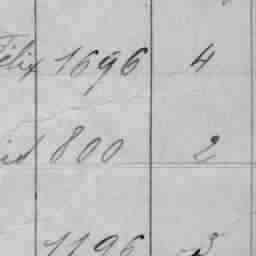 Félix 1696 4
800 2
1196 3